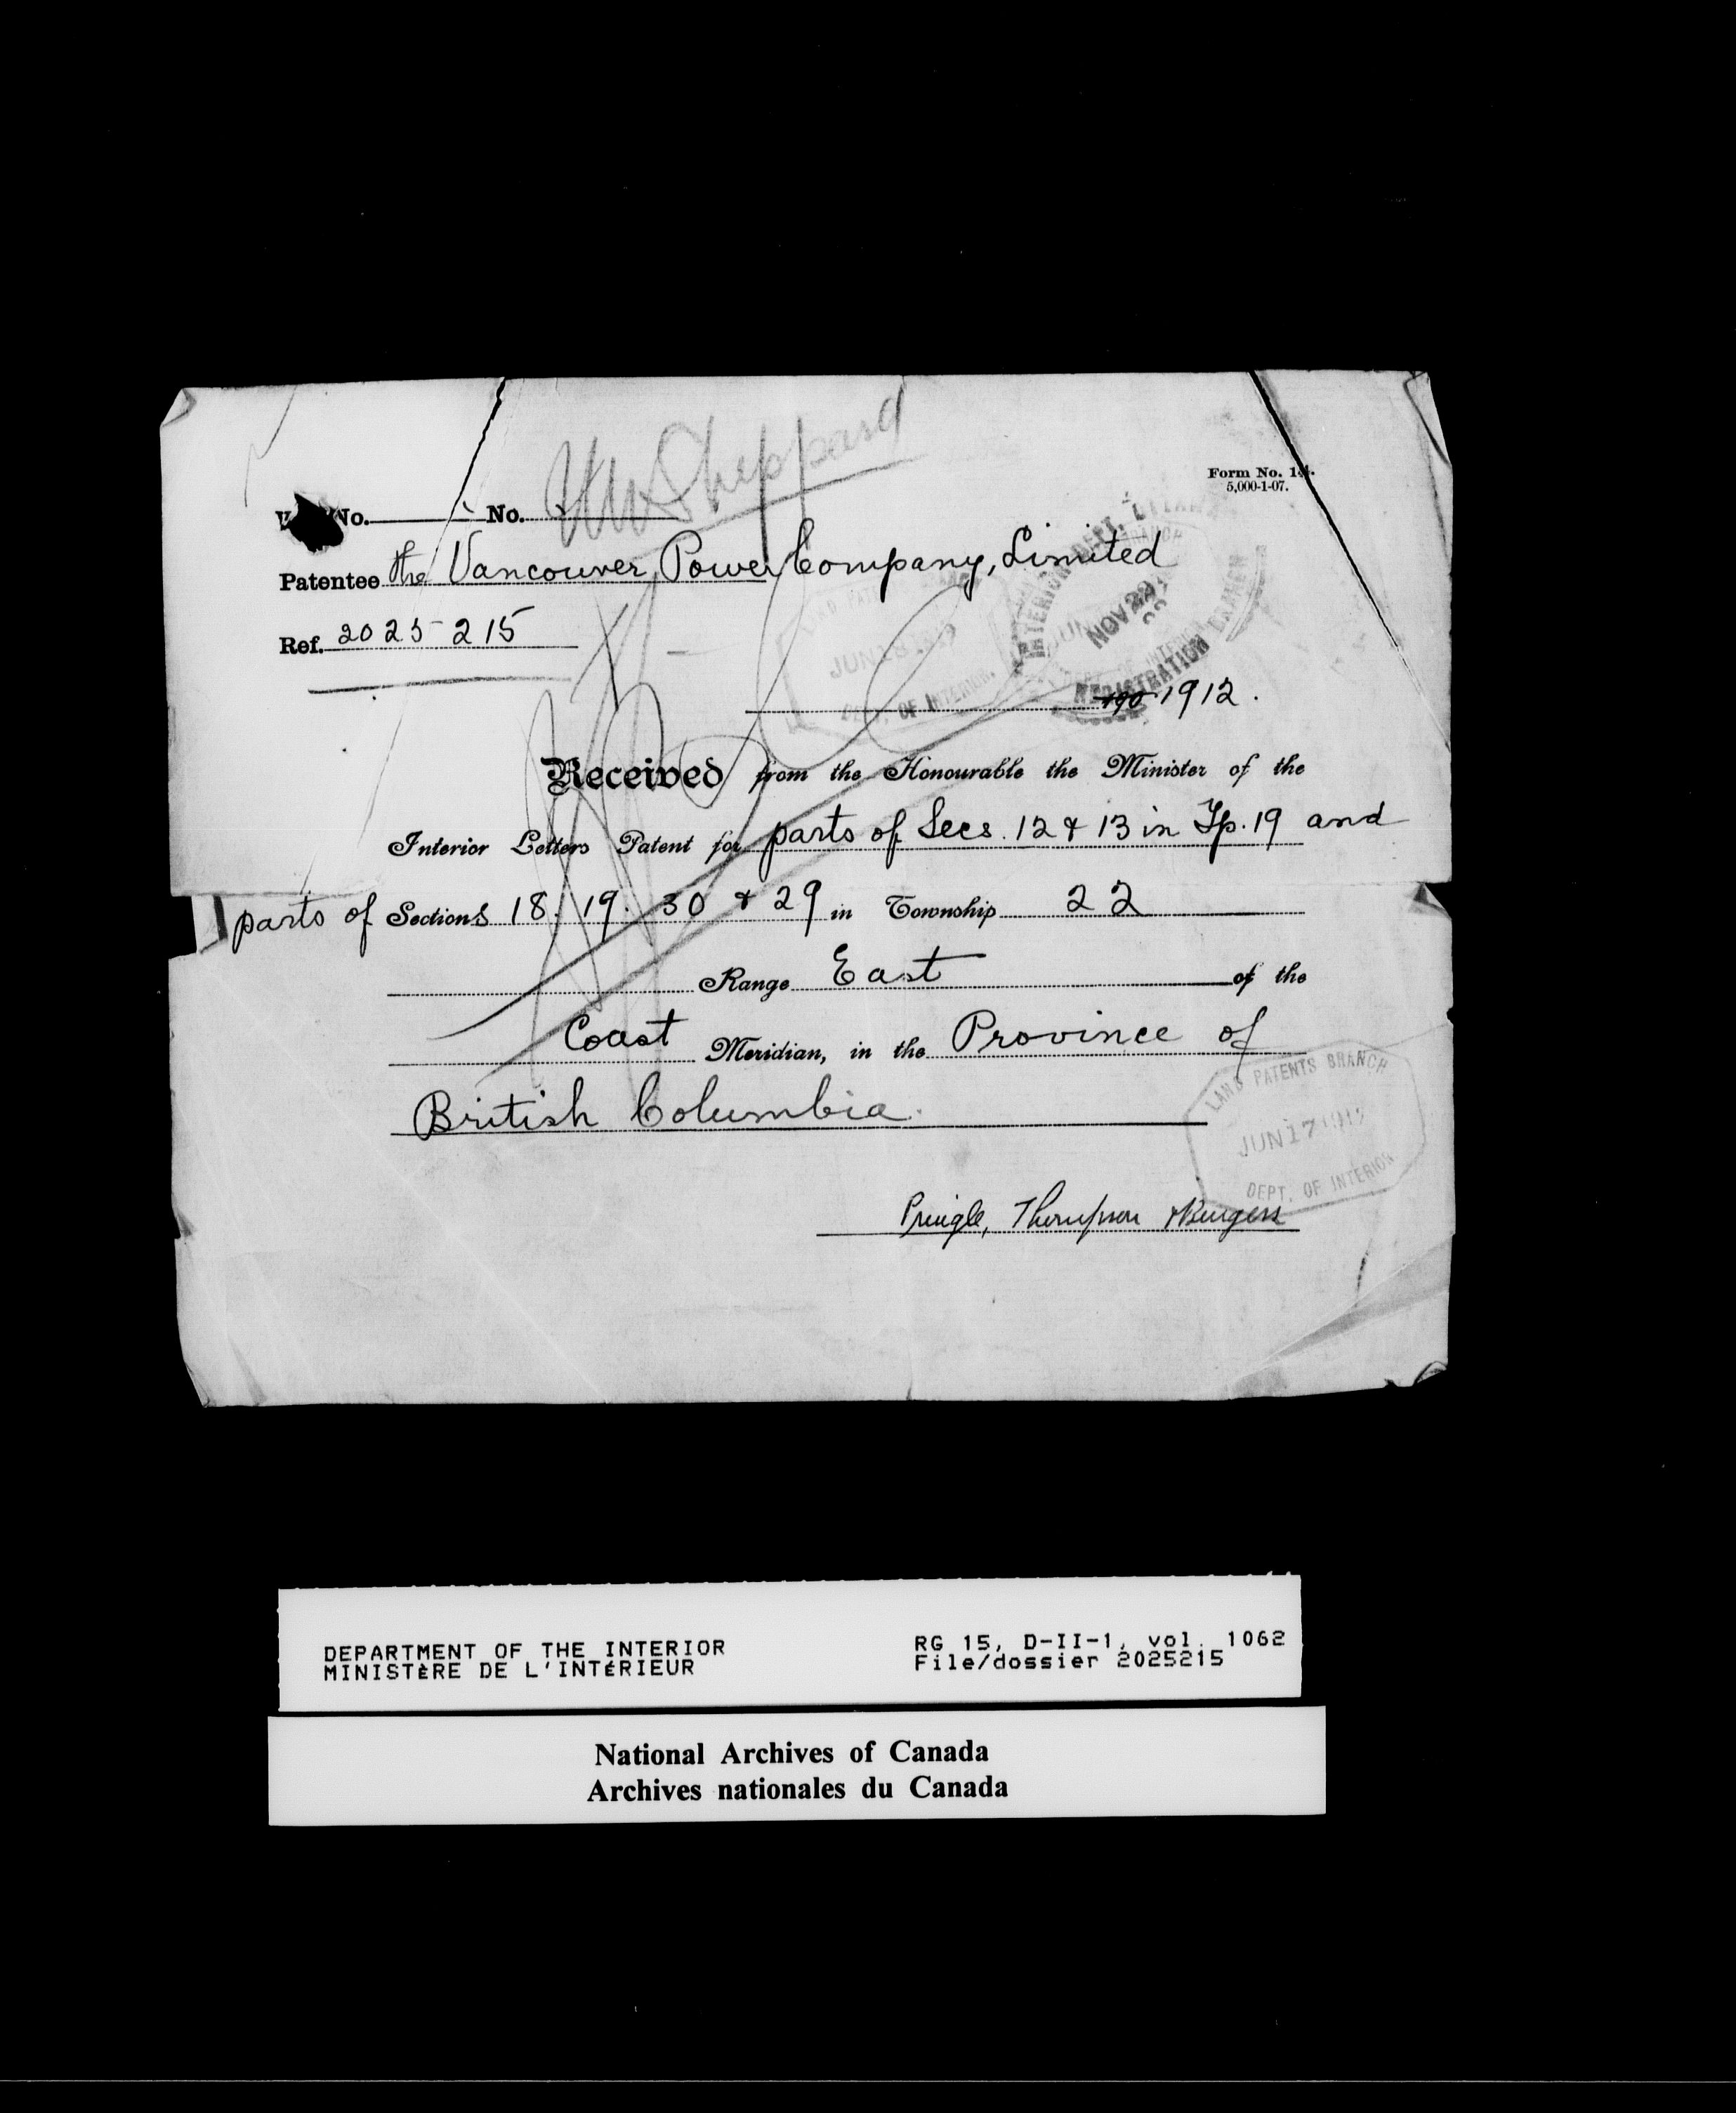 Sheppard
Form No. 14.
5,000-1-07.
No. No.
Patentee the Vancouver Power Company, Limited
Ref. 2025215
INTERIOR DEPT. OTTAWA
NOV 29
REGISTRATION BRANCH
LAND PATENTS
JUN 18
DEPT. OF INTERIOR
190 1912.
Received from the Honourable the Minister of the
Interior Letters Patent for parts of Secs. 12 & 13 in Tp. 19 and
parts of Sections 18. 19. 30 & 29 in Township 22
Range East of the
Coast Meridian, in the Province of
British Columbia.
LAND PATENTS BRANCH
JUN 17 1912
DEPT. OF INTERIOR
Pringle, Thompson & Burgess
DEPARTMENT OF THE INTERIOR RG 15, D-II-1, vol. 1062
MINISTÈRE DE L'INTÉRIEUR File/dossier 2025215
National Archives of Canada
Archives nationales du Canada